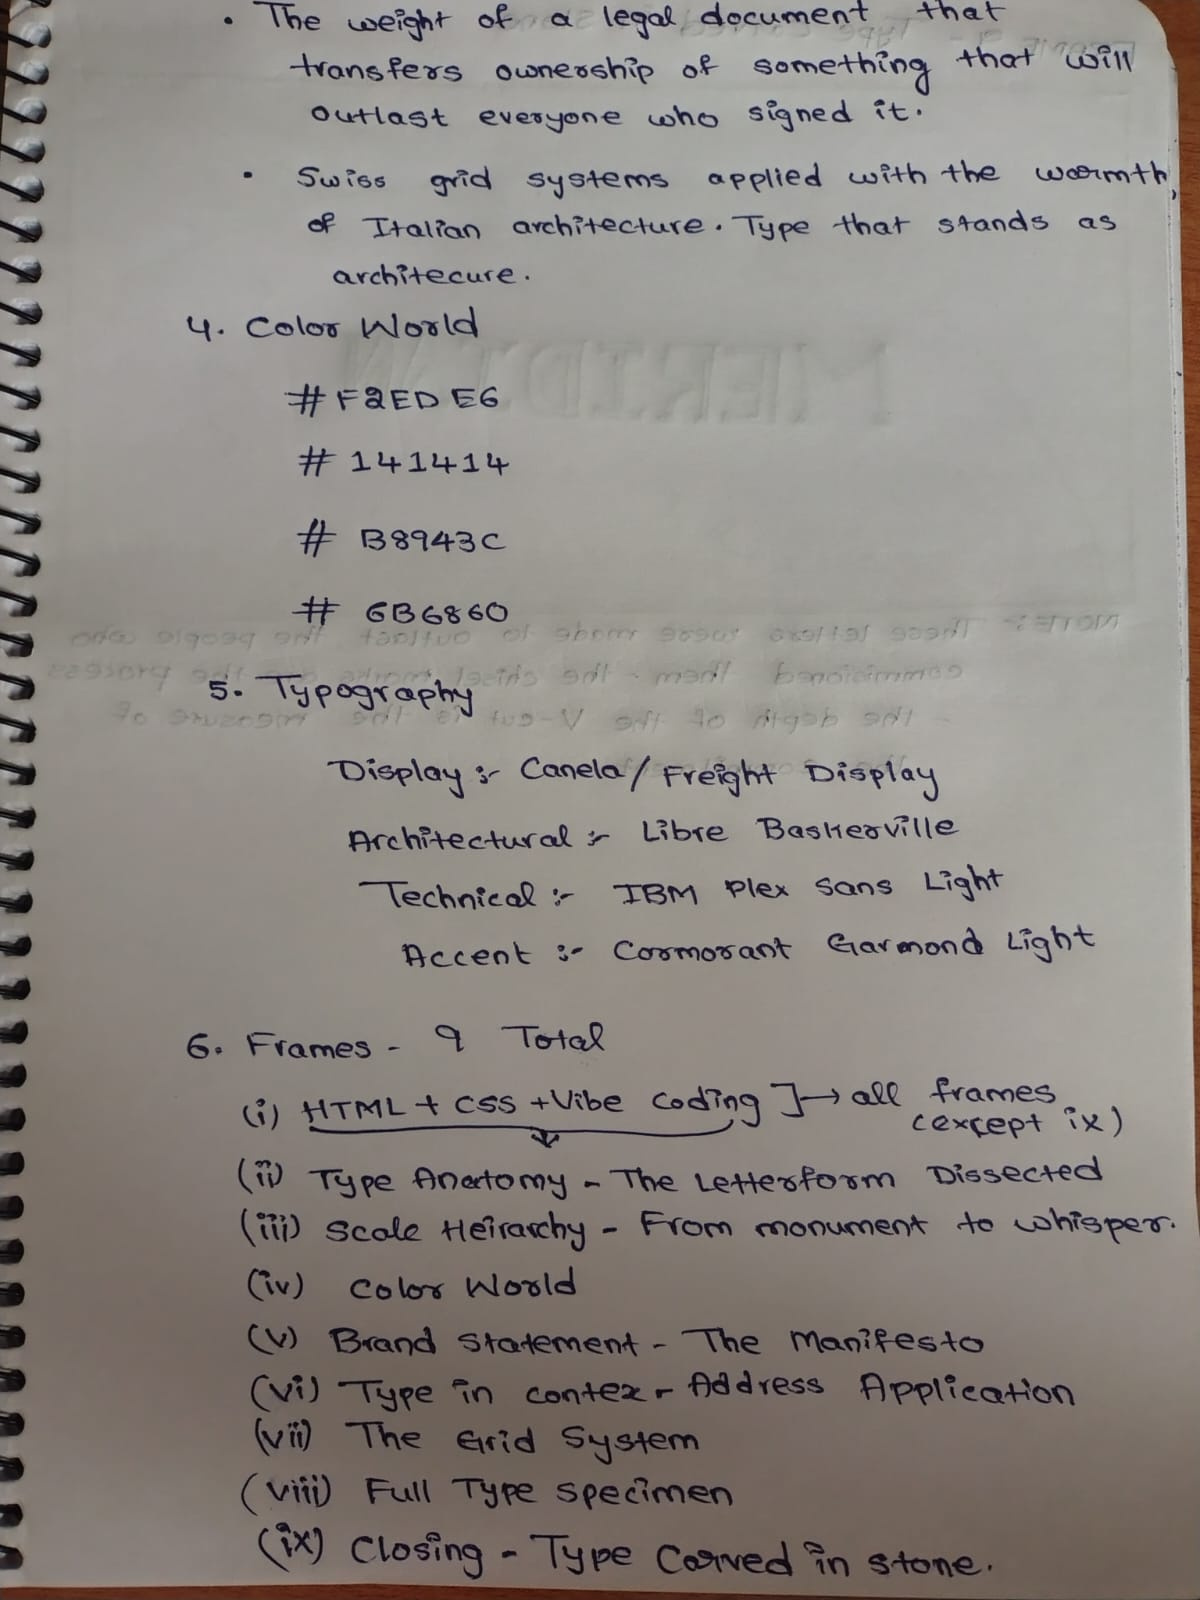 • The weight of a legal document that
transfers ownership of something that will
outlast everyone who signed it.
• Swiss grid systems applied with the warmth
of Italian architecture. Type that stands as
architecure.
4. Color World
# F2EDE6
# 141414
# B8943C
# 6B6860
5. Typography
Display :- Canela / Freight Display
Architectural :- Libre Baskerville
Technical :- IBM Plex Sans Light
Accent :- Cormorant Garmond Light
6. Frames - 9 Total
(i) HTML + CSS + Vibe Coding ] → all frames
(except ix)
(ii) Type Anatomy - The Letterform Dissected
(iii) Scale Heirarchy - From monument to whisper.
(iv) Color World
(v) Brand Statement - The Manifesto
(vi) Type in contex - Address Application
(vii) The Grid System
(viii) Full Type Specimen
(ix) Closing - Type Carved in stone.